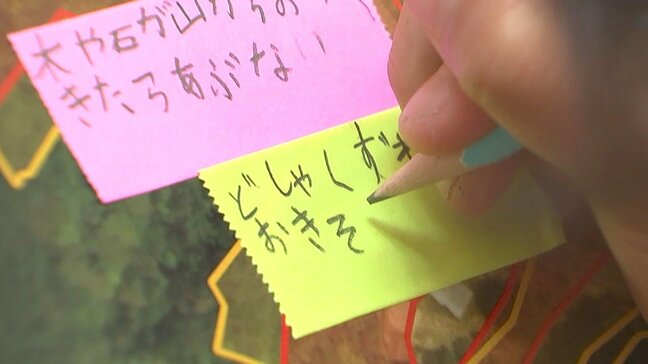 木や石が山からお
きたらあぶない
どしゃくずれ
おきそ